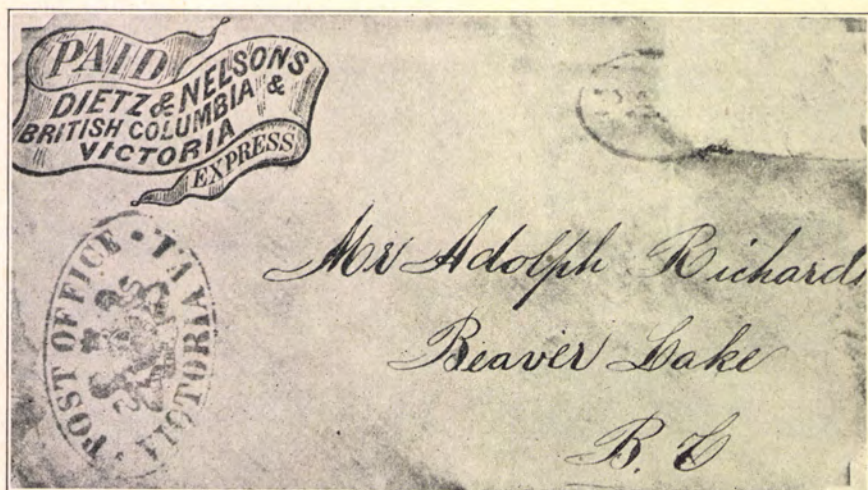 PAID
DIETZ & NELSONS
BRITISH COLUMBIA &
VICTORIA
EXPRESS
POST OFFICE · VICTORIA ·
Mr Adolph Richards
Beaver Lake
B. C